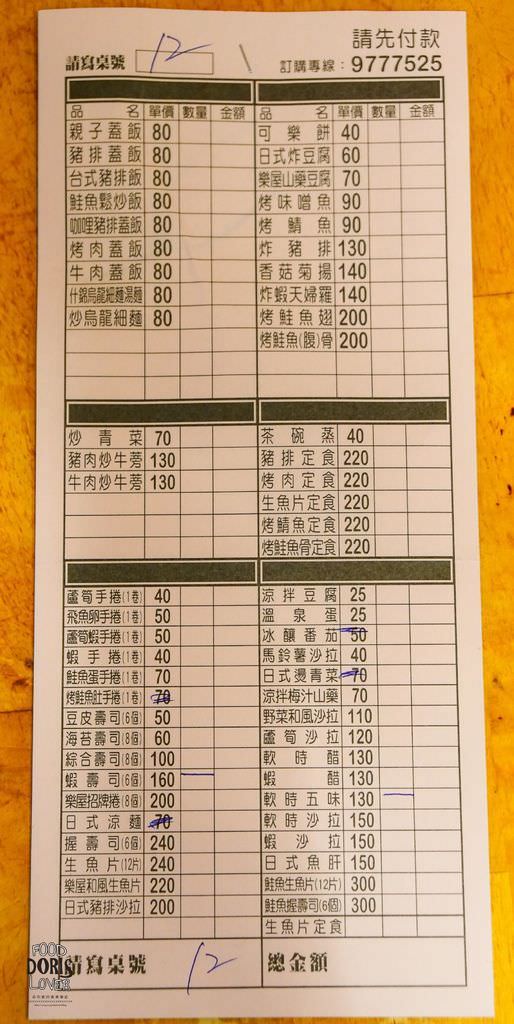 請先付款
請寫桌號 12 訂購專線：9777525
品名 單價 數量 金額
親子蓋飯 80
豬排蓋飯 80
台式豬排飯 80
鮭魚鬆炒飯 80
咖哩豬排蓋飯 80
烤肉蓋飯 80
牛肉蓋飯 80
什錦烏龍細麵湯麵 80
炒烏龍細麵 80
品名 單價 數量 金額
可樂餅 40
日式炸豆腐 60
樂屋山藥豆腐 70
烤味噌魚 90
烤鯖魚 90
炸豬排 130
香菇菊揚 140
炸蝦天婦羅 140
烤鮭魚翅 200
烤鮭魚(腹)骨 200
炒青菜 70
豬肉炒牛蒡 130
牛肉炒牛蒡 130
茶碗蒸 40
豬排定食 220
烤肉定食 220
生魚片定食 220
烤鯖魚定食 220
烤鮭魚骨定食 220
蘆筍手捲(1卷) 40
飛魚卵手捲(1卷) 50
蘆筍蝦手捲(1卷) 50
蝦手捲(1卷) 40
鮭魚蛋手捲(1卷) 70
烤鮭魚肚手捲(1卷) 70
豆皮壽司(6個) 50
海苔壽司(8個) 60
綜合壽司(8個) 100
蝦壽司(6個) 160
樂屋招牌捲(8個) 200
日式涼麵 70
握壽司(6個) 240
生魚片(12片) 240
樂屋和風生魚片 220
日式豬排沙拉 200
涼拌豆腐 25
溫泉蛋 25
冰釀番茄 50
馬鈴薯沙拉 40
日式燙青菜 70
涼拌梅汁山藥 70
野菜和風沙拉 110
蘆筍沙拉 120
軟時醋 130
蝦醋 130
軟時五味 130
軟時沙拉 150
蝦沙拉 150
日式魚肝 150
鮭魚生魚片(12片) 300
鮭魚握壽司(6個) 300
生魚片定食
請寫桌號 12 總金額
FOOD
DORIS
LOVER